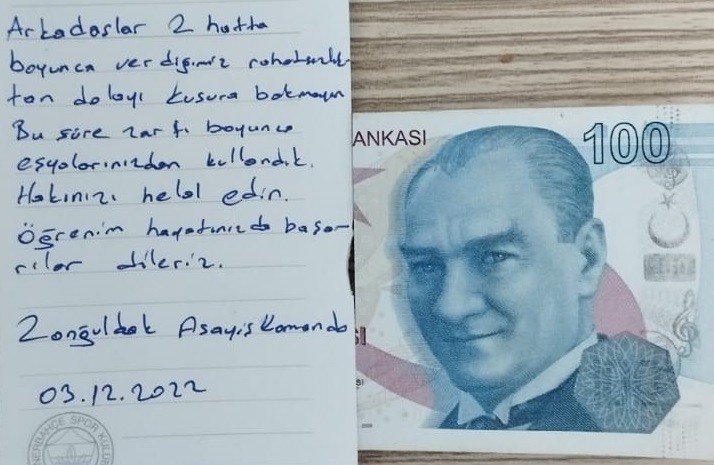 Arkadaşlar 2 hafta
boyunca verdiğimiz rahatsızlık-
tan dolayı kusura bakmayın
Bu süre zarfı boyunca
eşyalarınızdan kullandık.
Hakınızı helal edin.
Öğrenim hayatınızda başa-
rılar dileriz.
Zonguldak Asayiş Komando
03.12.2022
ANKASI
100